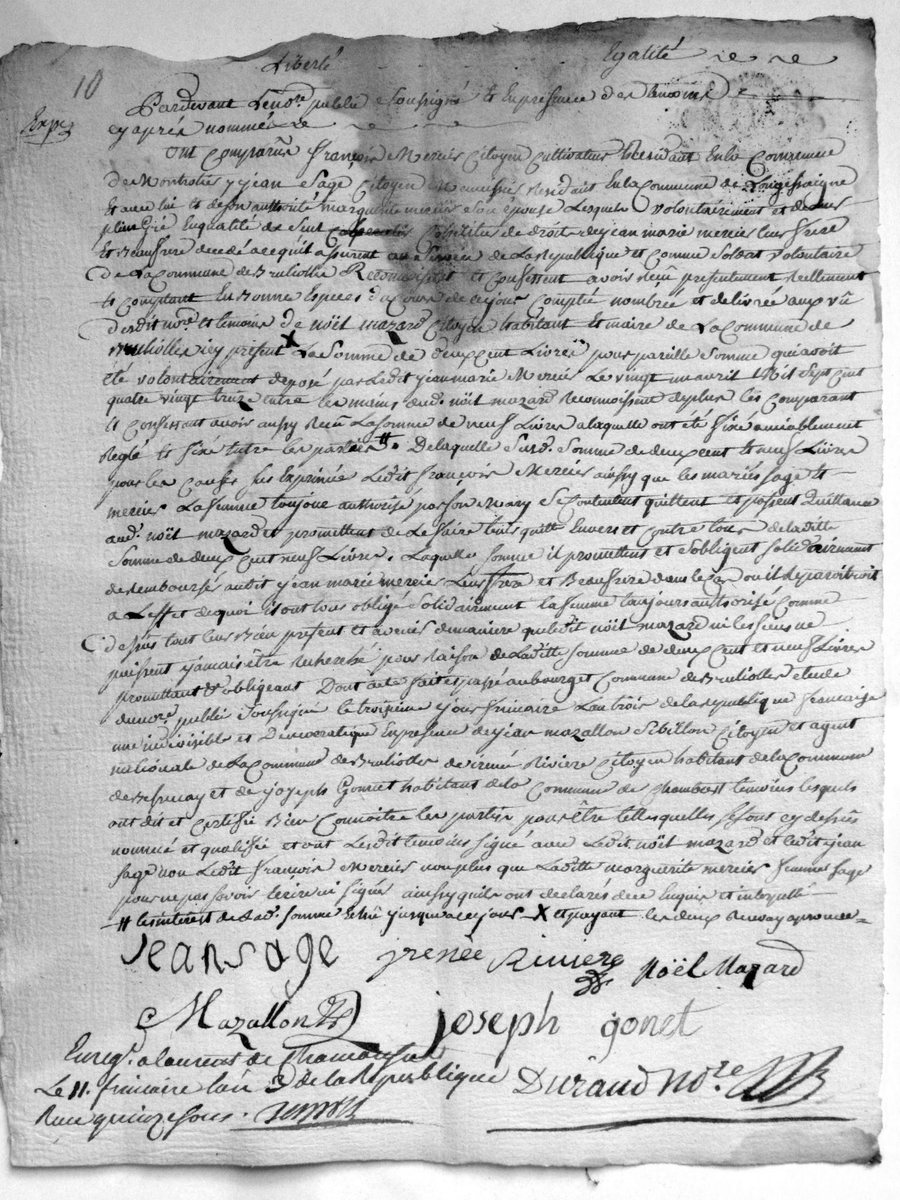 10
Liberté Egalité
Expé
Pardevant Le no.re public Soussigné & En presence des temoins
cy aprés nommés
Ont Comparus françois Mercier Citoyen Cultivateur Residant En la Commune
de Montrotier, jean Sage Citoyen Residant En la Commune de Longessaigne
Et avec lui & de son authorité marguerite mercier Son Epouse Lesquels Volontairement et de leur
plein gré En qualité de Seuls heritiers de droit de jean marie mercier leur frere
Et Beaufrere decedé a ce qu'il assurent au Service de La Republique et Comme Soldat Volontaire
de La Commune de Brullioles Reconnoissent et Confessent avoir Reçu presentement Reellement
& Comptant En Bonne Especes d'ajCours de ce jour Comptée nombrée et delivrée aux vû
Desdit no.re et temoins De noël mazard Citoyen habitant Et maire de La Commune de
Brullioles icy present X La Somme de deux Cent Livres pour pareille Somme qui avoit
été volontairement deposé par Ledit jean marie Mercier Le vingt un avril Mil Sept Cent
quatre vingt treize Entre les mains dud. noël mazard Reconnoissent de plus les Comparant
& Confessant avoir aussy Reçu La Somme de neuf Livres a laquelle ont été fixé amiablement
Reglé & fixé Entre les parties #. De laquelle Surd. Somme de deux Cent & neuf Livres
pour les Causes Sus Exprimée Ledit françois Mercier ainsy que les mariés Sage &
mercier La femme toujour authorisé par Son mary Se Contentent quittent Et passent Quittance
aud. noël mazard et promettent de Le faire tenir quitt Envers et Contre tous de La ditte
Somme de deux Cent neuf Livres. Laquelle Somme il promettent et S'obligent Solidairement
de Remboursé audit jean marie mercier Leur frere et Beaufrere dans le Cas ou il Reparoitroit
a L'effet de quoi ils ont tous obligé Solidairement la femme toujours authorisé Comme
dessus tout leur Bien present et avenir de maniere que Ledit noël mazard ni les Siens ne
puissent jamais être Recherché pour Raison de La ditte Somme de deux Cent et neuf Livres
promettant & obligeant Dont acte fait & passé au bourg et Commune de Brullioles etude
du no.re public Soussigné Le troisieme jour frimaire L'an trois de la republique francaise
une indivisible et Democratique En presence de jean mazallon Sibillon Citoyen et agent
nationale de La Commune de Brullioles de irené Riviere Citoyen habitant de la Commune
de Bessenay et de joseph Gonnet habitant de la Commune de Chambost temoins lesquels
ont dit et Certifié Bien Connoitre les parties pour être telles quelles Se Sont Cy dessus
nommé et qualifié et ont Lesdit temoins Signé avec Ledit noël mazard et ledit jean
Sage non Ledit françois Mercier non plus que Laditte marguerite mercier femme Sage
pour ne pas Savoir Ecrire ni Signer ainssy quils ont declarés de ce Enquis et interpellé
# les interest de Lad. Somme Echu jusqu'a ce jour X Et payant les deux Renvoy aprouvé
jean sage jrenée Riviere Noël Mazard
Mazallon joseph gonet
Enreg. a Laurent de Chamousset
Le 11. frimaire l'an 3 de la Republique Durand No.re
Reçu quinze Sous.